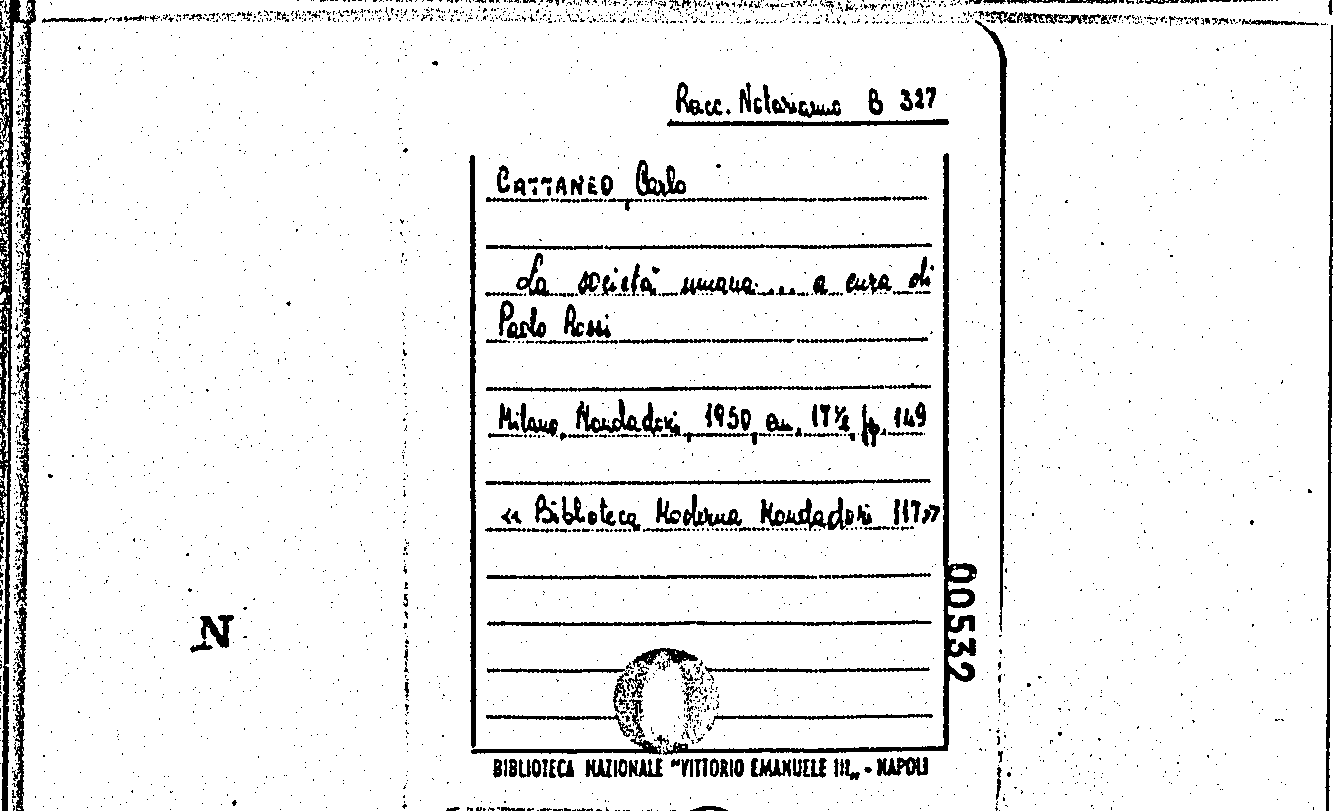 Racc. Notarianno B 327
CATTANEO, Carlo
La società umana... a cura di
Paolo Rossi
Milano, Mondadori, 1950, cm. 17½, pp. 149
« Biblioteca Moderna Mondadori 117»
00532
N
BIBLIOTECA NAZIONALE "VITTORIO EMANUELE III„ - NAPOLI